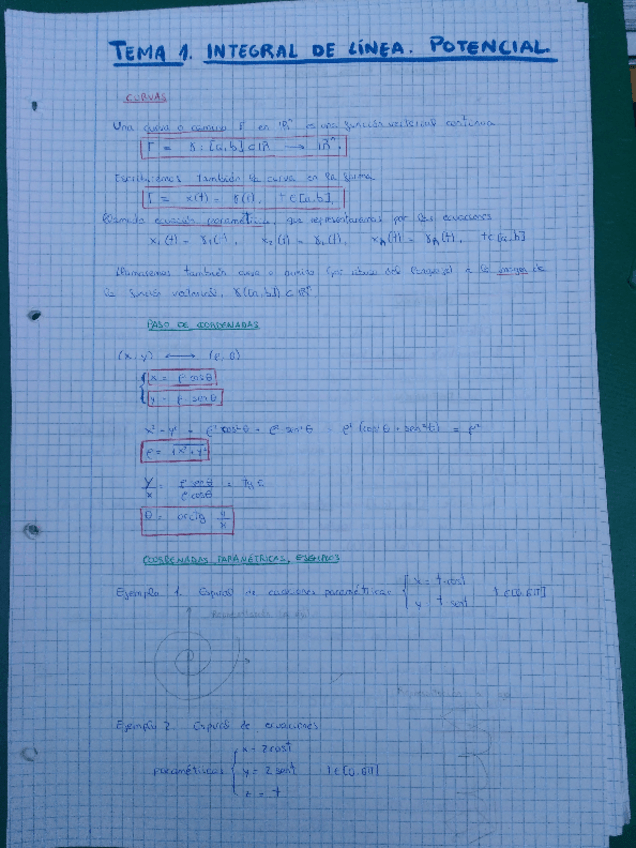 TEMA 1. INTEGRAL DE LÍNEA. POTENCIAL.
CURVAS
Una curva o camino Γ en ℝⁿ es una función vectorial continua
Γ ≡ γ: [a,b] ⊂ ℝ → ℝⁿ.
Escribiremos también la curva en la forma
Γ ≡ x(t) = γ(t), t ∈ [a,b],
llamada ecuación paramétrica, que representaremos por las ecuaciones
x₁(t) = γ₁(t), x₂(t) = γ₂(t), xₙ(t) = γₙ(t), t ∈ [a,b]
Llamaremos también curva o camino (por abuso del lenguaje) a la imagen de
la función vectorial, γ([a,b]) ⊂ ℝⁿ.
PASO DE COORDENADAS
(x,y) ⟷ (ρ,θ)
x = ρ cosθ
y = ρ senθ
x² + y² = ρ² cos²θ + ρ² sen²θ = ρ² (cos²θ + sen²θ) = ρ²
ρ = √x²+y²
y/x = ρ senθ / ρ cosθ = tg θ
θ = arctg y/x
COORDENADAS PARAMÉTRICAS, EJEMPLOS
Ejemplo 1. Espiral de ecuaciones paramétricas { x = t cost
y = t sent t ∈ [0,6π]
Ejemplo 2. Espiral de ecuaciones
paramétricas { x = 2cost
y = 2 sent t ∈ [0,6π]
z = t